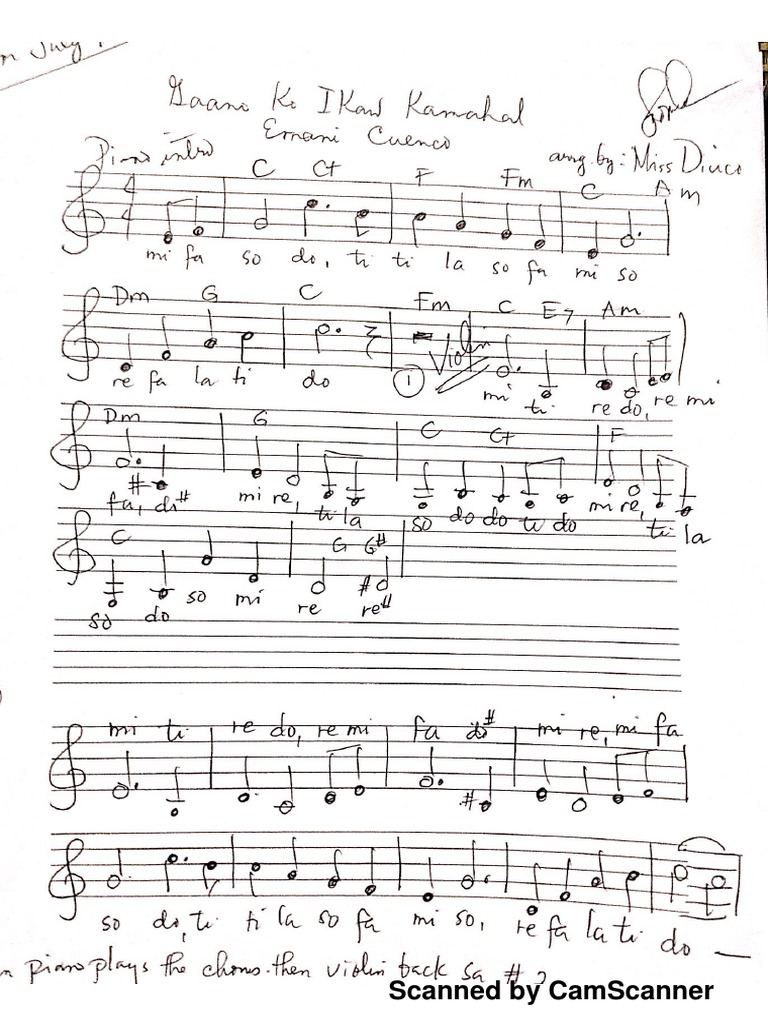 July
Gaano Ko Ikaw Kamahal
Ernani Cuenco
Piano intro
arrg. by: Miss Dinco
C C+ F Fm C Am
4
4
mi fa so do, ti ti la so fa mi so
Dm G C Fm C E7 Am
Violin
1
re fa la ti do mi ti re do, re mi
Dm G C C+ F
fa, di# mi re, ti la so do do ti do mi re, ti la
C G G#
so do so mi re re#
mi ti re do, re mi fa di# mi re, mi fa
so do, ti ti la so fa mi so, re fa la ti do
piano plays the chorus. then violin back sa #
Scanned by CamScanner